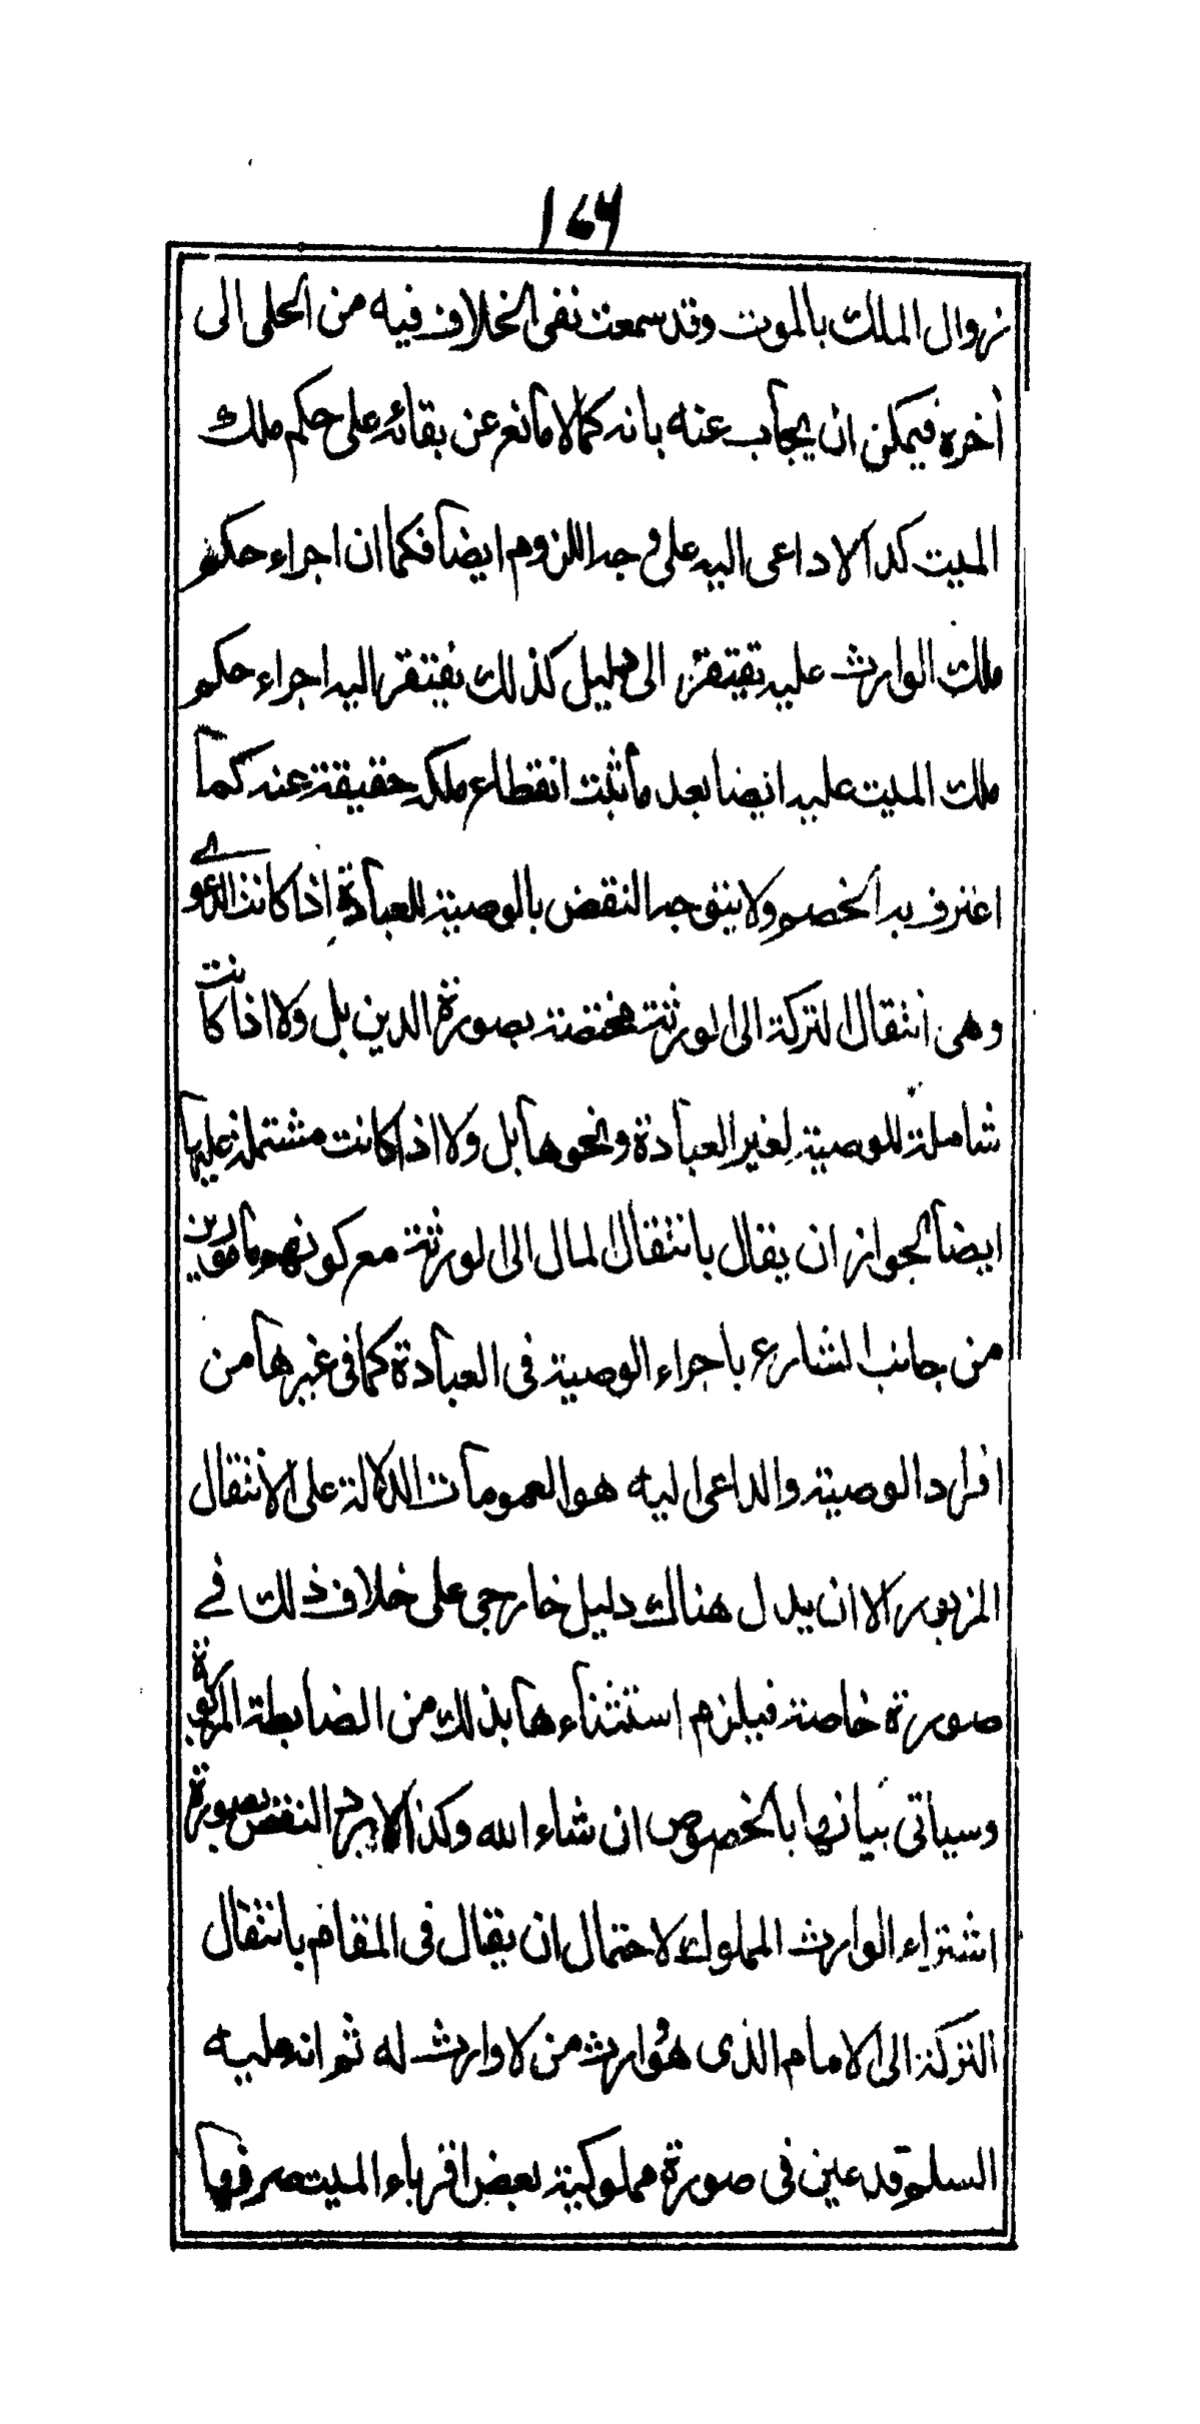 ١٧٦
زوال الملك بالموت وقد سمعت نفى الخلاف فيه من الحلى الى
أخره فيمكن ان يجاب عنه بانه كما لا مانع عن بقائه على حكم ملك
الميت كذا لا داعى اليه على وجه اللزوم ايضا فكما ان اجراء حكم
ملك الوارث عليه تفيتقر الى دليل كذلك يفيتقر اليه اجراء حكم
ملك الميت عليه ايضا بعد ما ثبت انقطاع ملكه حقيقة عنه كما
اعترف به الخصم ولا يتوجه النقض بالوصية للعبادة اذا كانت الدعوے
وهى انتقال التركة الى الورثة مختصة بصورة الدين بل ولا اذا كانت
شاملة للوصية لغير العبادة ونحوها بل ولا اذا كانت مشتملة عليها
ايضا لجواز ان يقال بانتقال المال الى الورثة مع كونهم مامورين
من جانب الشارع باجراء الوصية فى العبادة كما فى غيرها من
افراد الوصية والداعى اليه هو العمومات الدلالة على الانتقال
المزبور الا ان يدل هناك دليل خارجى على خلاف ذلك فے
صورة خاصة فيلزم استثناءها بذلك من الضابطة المزبورة
وسيأتى بيانها بالخصوص ان شاء الله وكذا لا يرد النقض بصورة
اشتراء الوارث المملوك لاحتمال ان يقال فى المقام بانتقال
التركة الى الامام الذى هو وارث من لا وارث له ثم انه عليه
السلم قد عين فى صورة مملوكية بعض اقرباء الميت صرفها